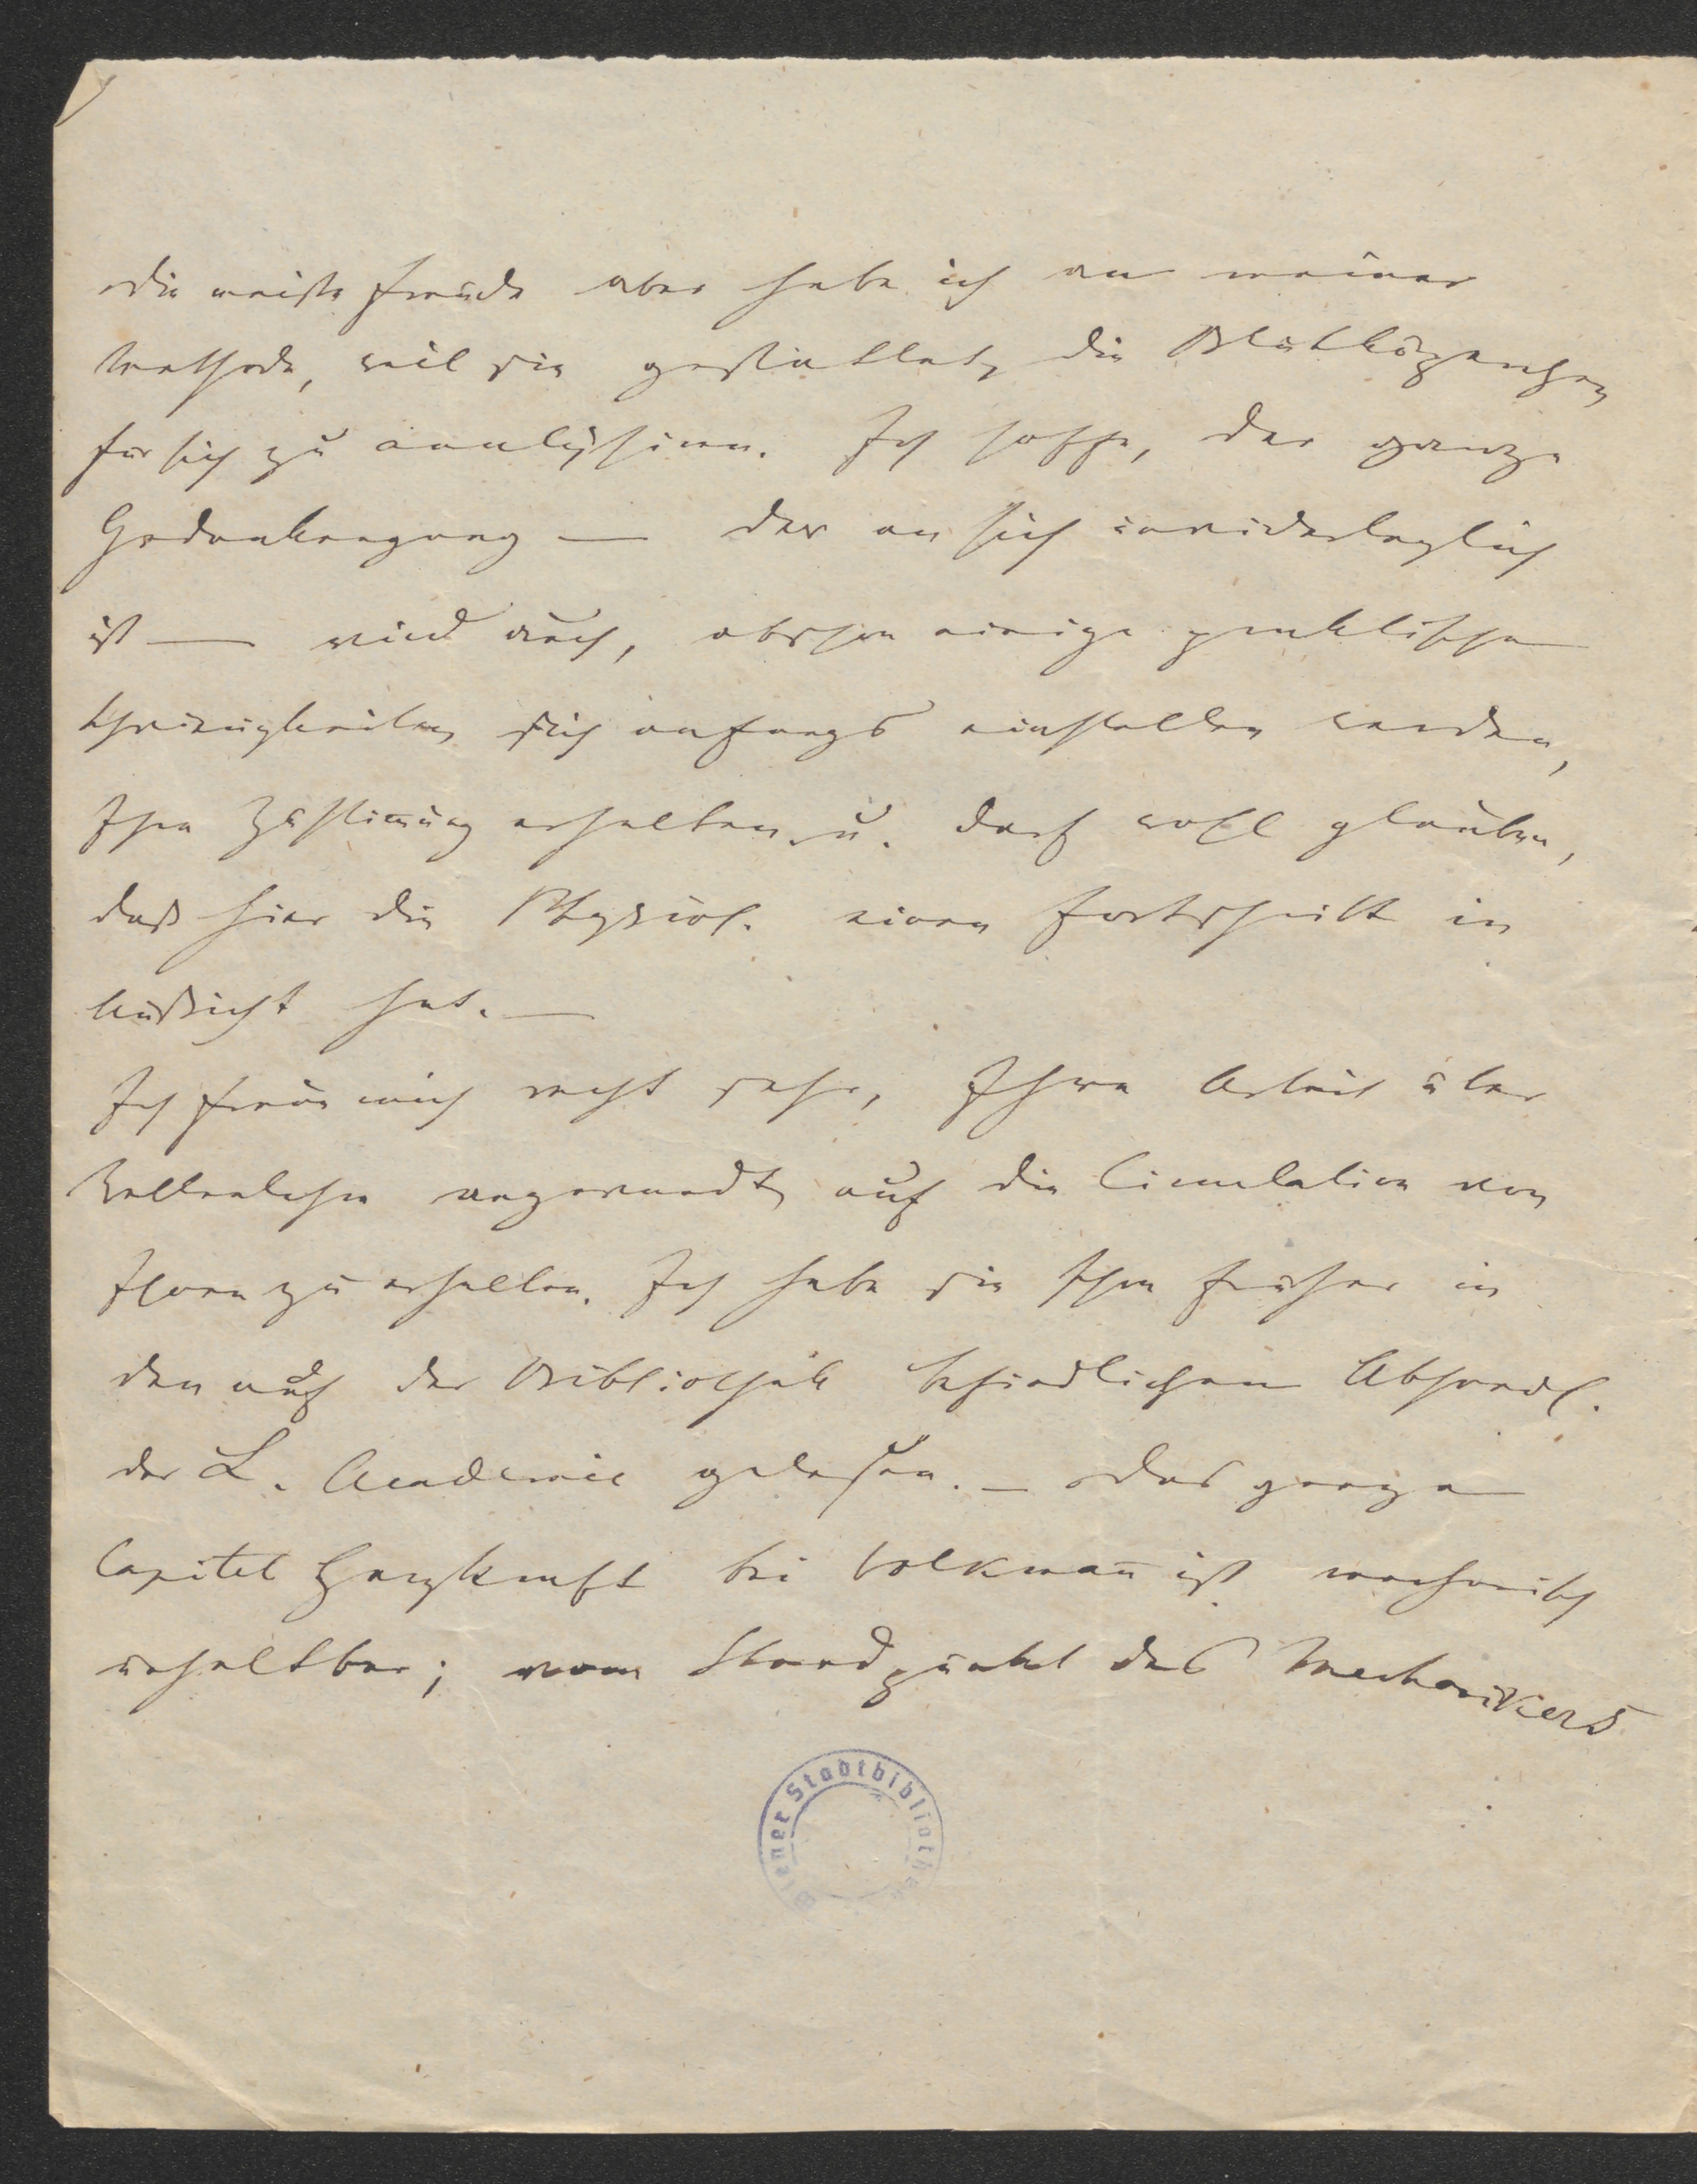 Die meiste Freude aber habe ich an meiner
Methode, weil sie gestattet, die Blutkörperchen
für sich zu analysiren. Ich hoffe, der ganze
Gedankengang — der an sich unwiderleglich
ist — wird auch, obschon einige praktische
Schwierigkeiten sich anfangs einstellen werden,
Ihre Zustim̄ung erhalten u. darf wohl glauben,
daß hier die Physiol. einen Fortschritt in
Aussicht hat. —
Ich freue mich recht sehr, Ihre Arbeit über
Wellenlehre angewandt auf die Circulation von
Ihnen zu erhalten. Ich habe sie schon früher in
den auf der Bibliothek befindlichen Abhandl.
der L. Academie gelesen. — Das ganze
Capitel Herzkraft bei Volkman̄ ist mechanisch
unhaltbar; vom Standpunkt des Mechanikers
Wiener Stadtbibliothek